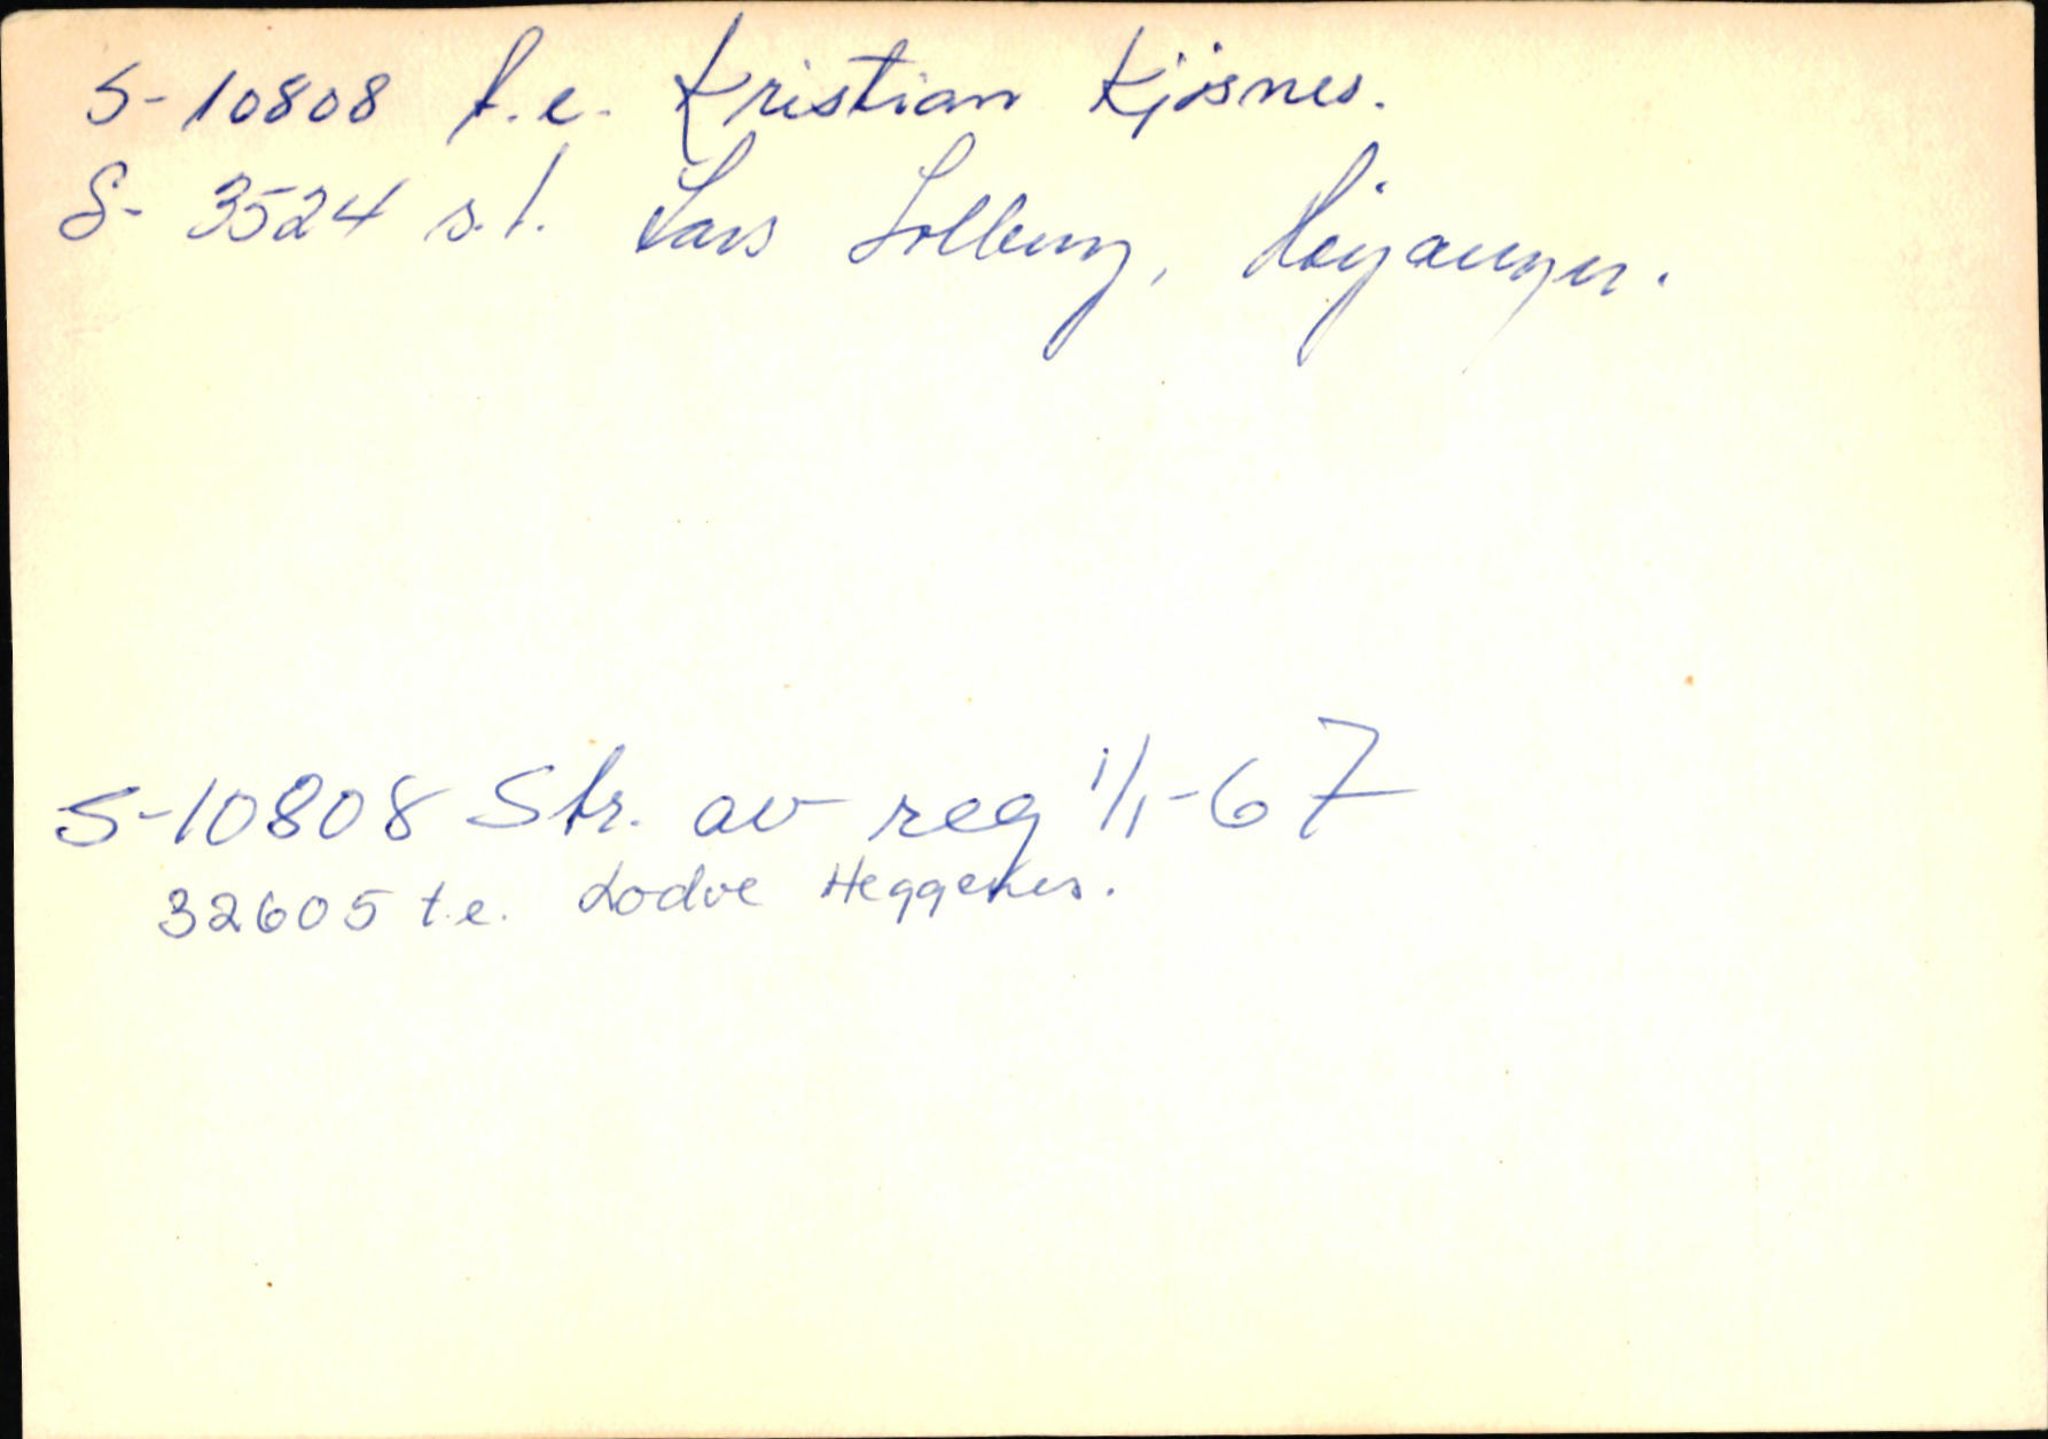 S-10808 t.e. Kristian Kjösnes.
S- 3524 s.t. Lars Solberg, Höyanger.
S-10808 Str. av reg 1/1-67
32605 t.e. Lodve Heggenes.